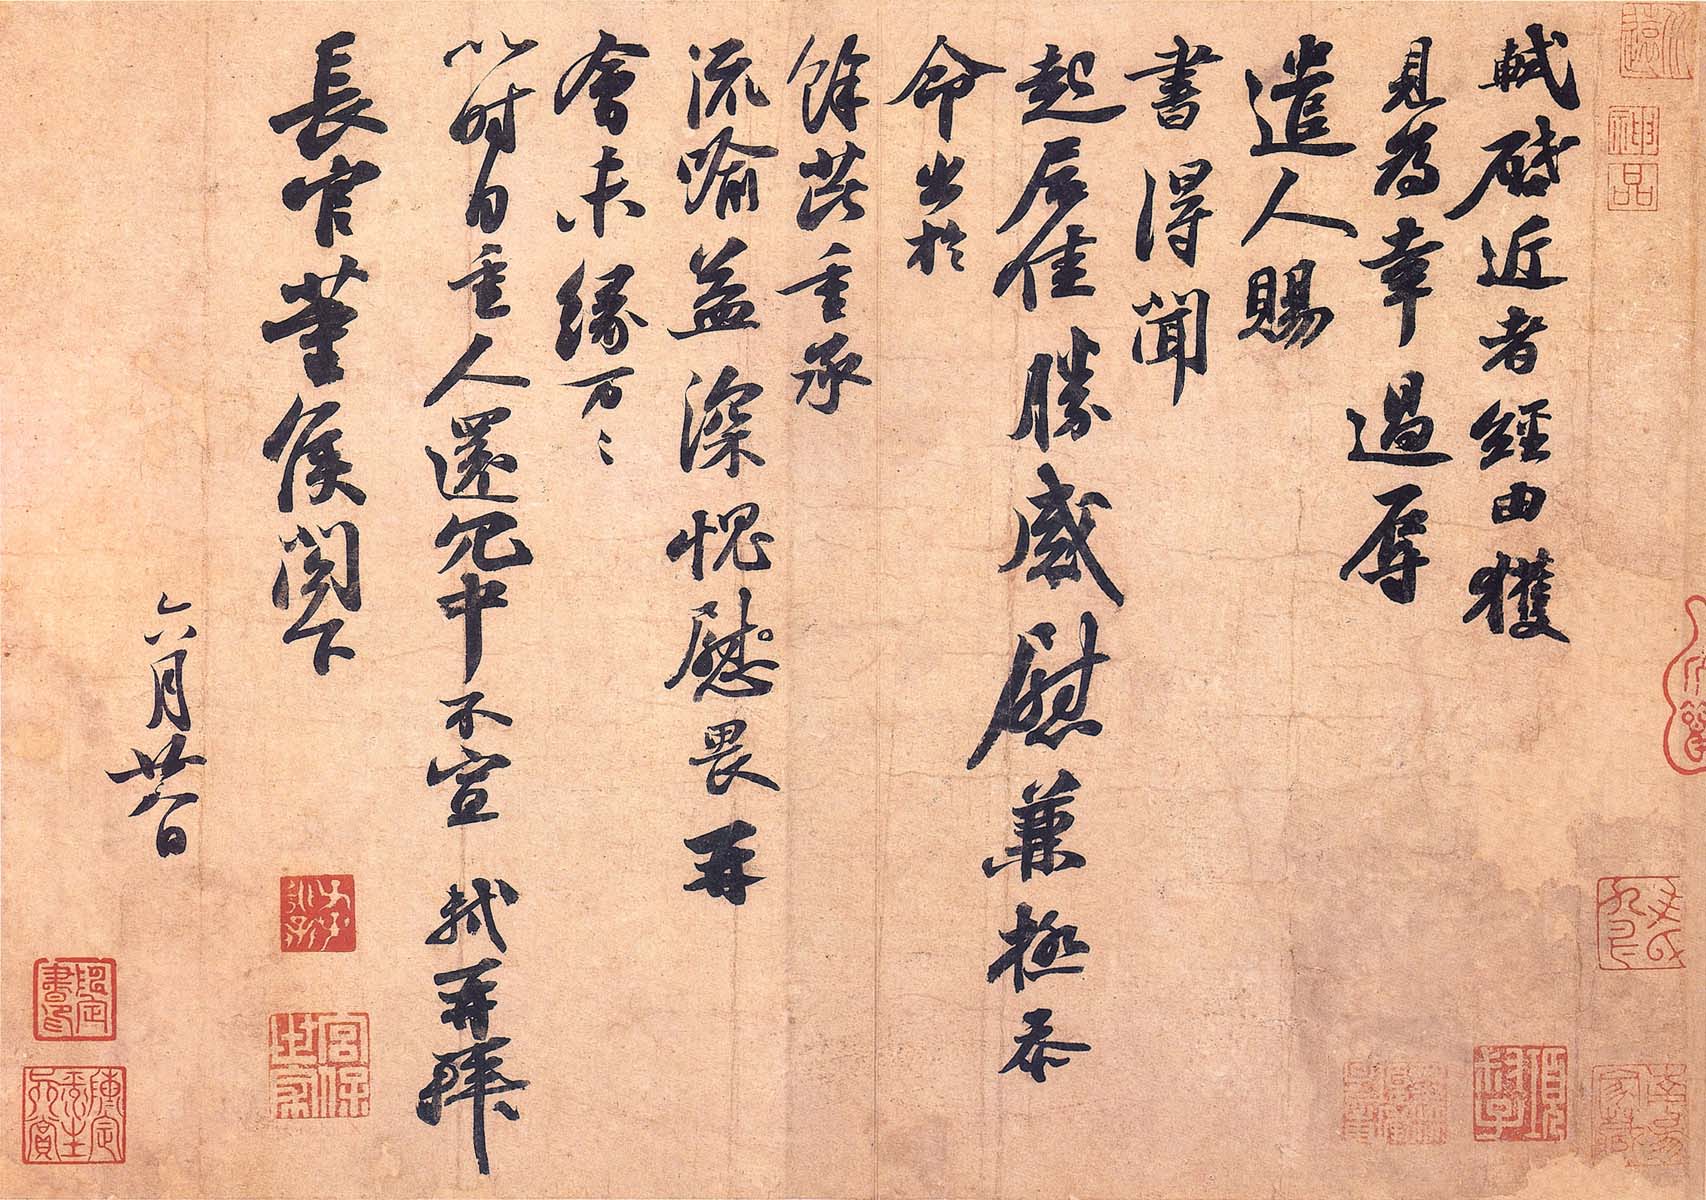 神品
軾啓近者經由獲
見為幸過辱
遣人賜
書得聞
起居佳勝感慰兼極忝
命出於
餘芘重承
流喻益深愧慰畏再
會未緣万〻
以時自重人還冗中不宣 軾再拜
長官董侯閤下
六月廿八日
宮保世家